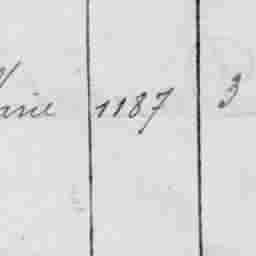 arie 1187 3